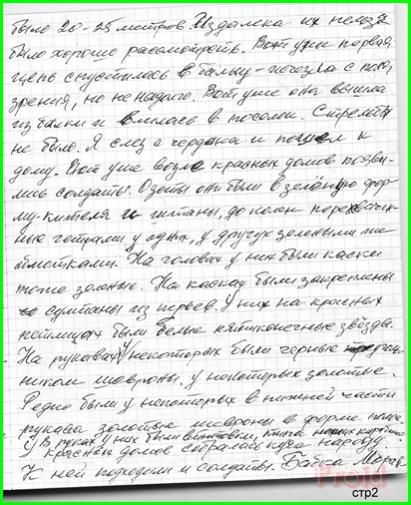 было 20-25 метров. Издалека их нельзя
было хорошо рассмотреть. Вот уже первая
цепь спустилась в балку - исчезла с поля
зрения, но не надолго. Вот уже она вышла
из балки и влилась в поселок. Стрельбы
не было. Я слез с чердака и пошел к
дому. Вот уже возле красных домов появи-
лись солдаты. Одеты они были в зелёную фор-
му-кителя и штаны, до колен перехвачен-
ные гетрами у одних, у других зелеными
обмотками. На головах у них были каски
тоже зеленые. На касках были закреплены
султаны из перьев. У них на красных
петлицах были белые пятиконечные звёзды.
На рукавах у некоторых были черные
шевроны, у некоторых золотые.
Редко были у некоторых в нижней части
рукава золотые шевроны в форме
У В руках у них были винтовки,
У красных домов собралась куча народу.
К ней подходим и солдаты. Бабка
Proid
стр2